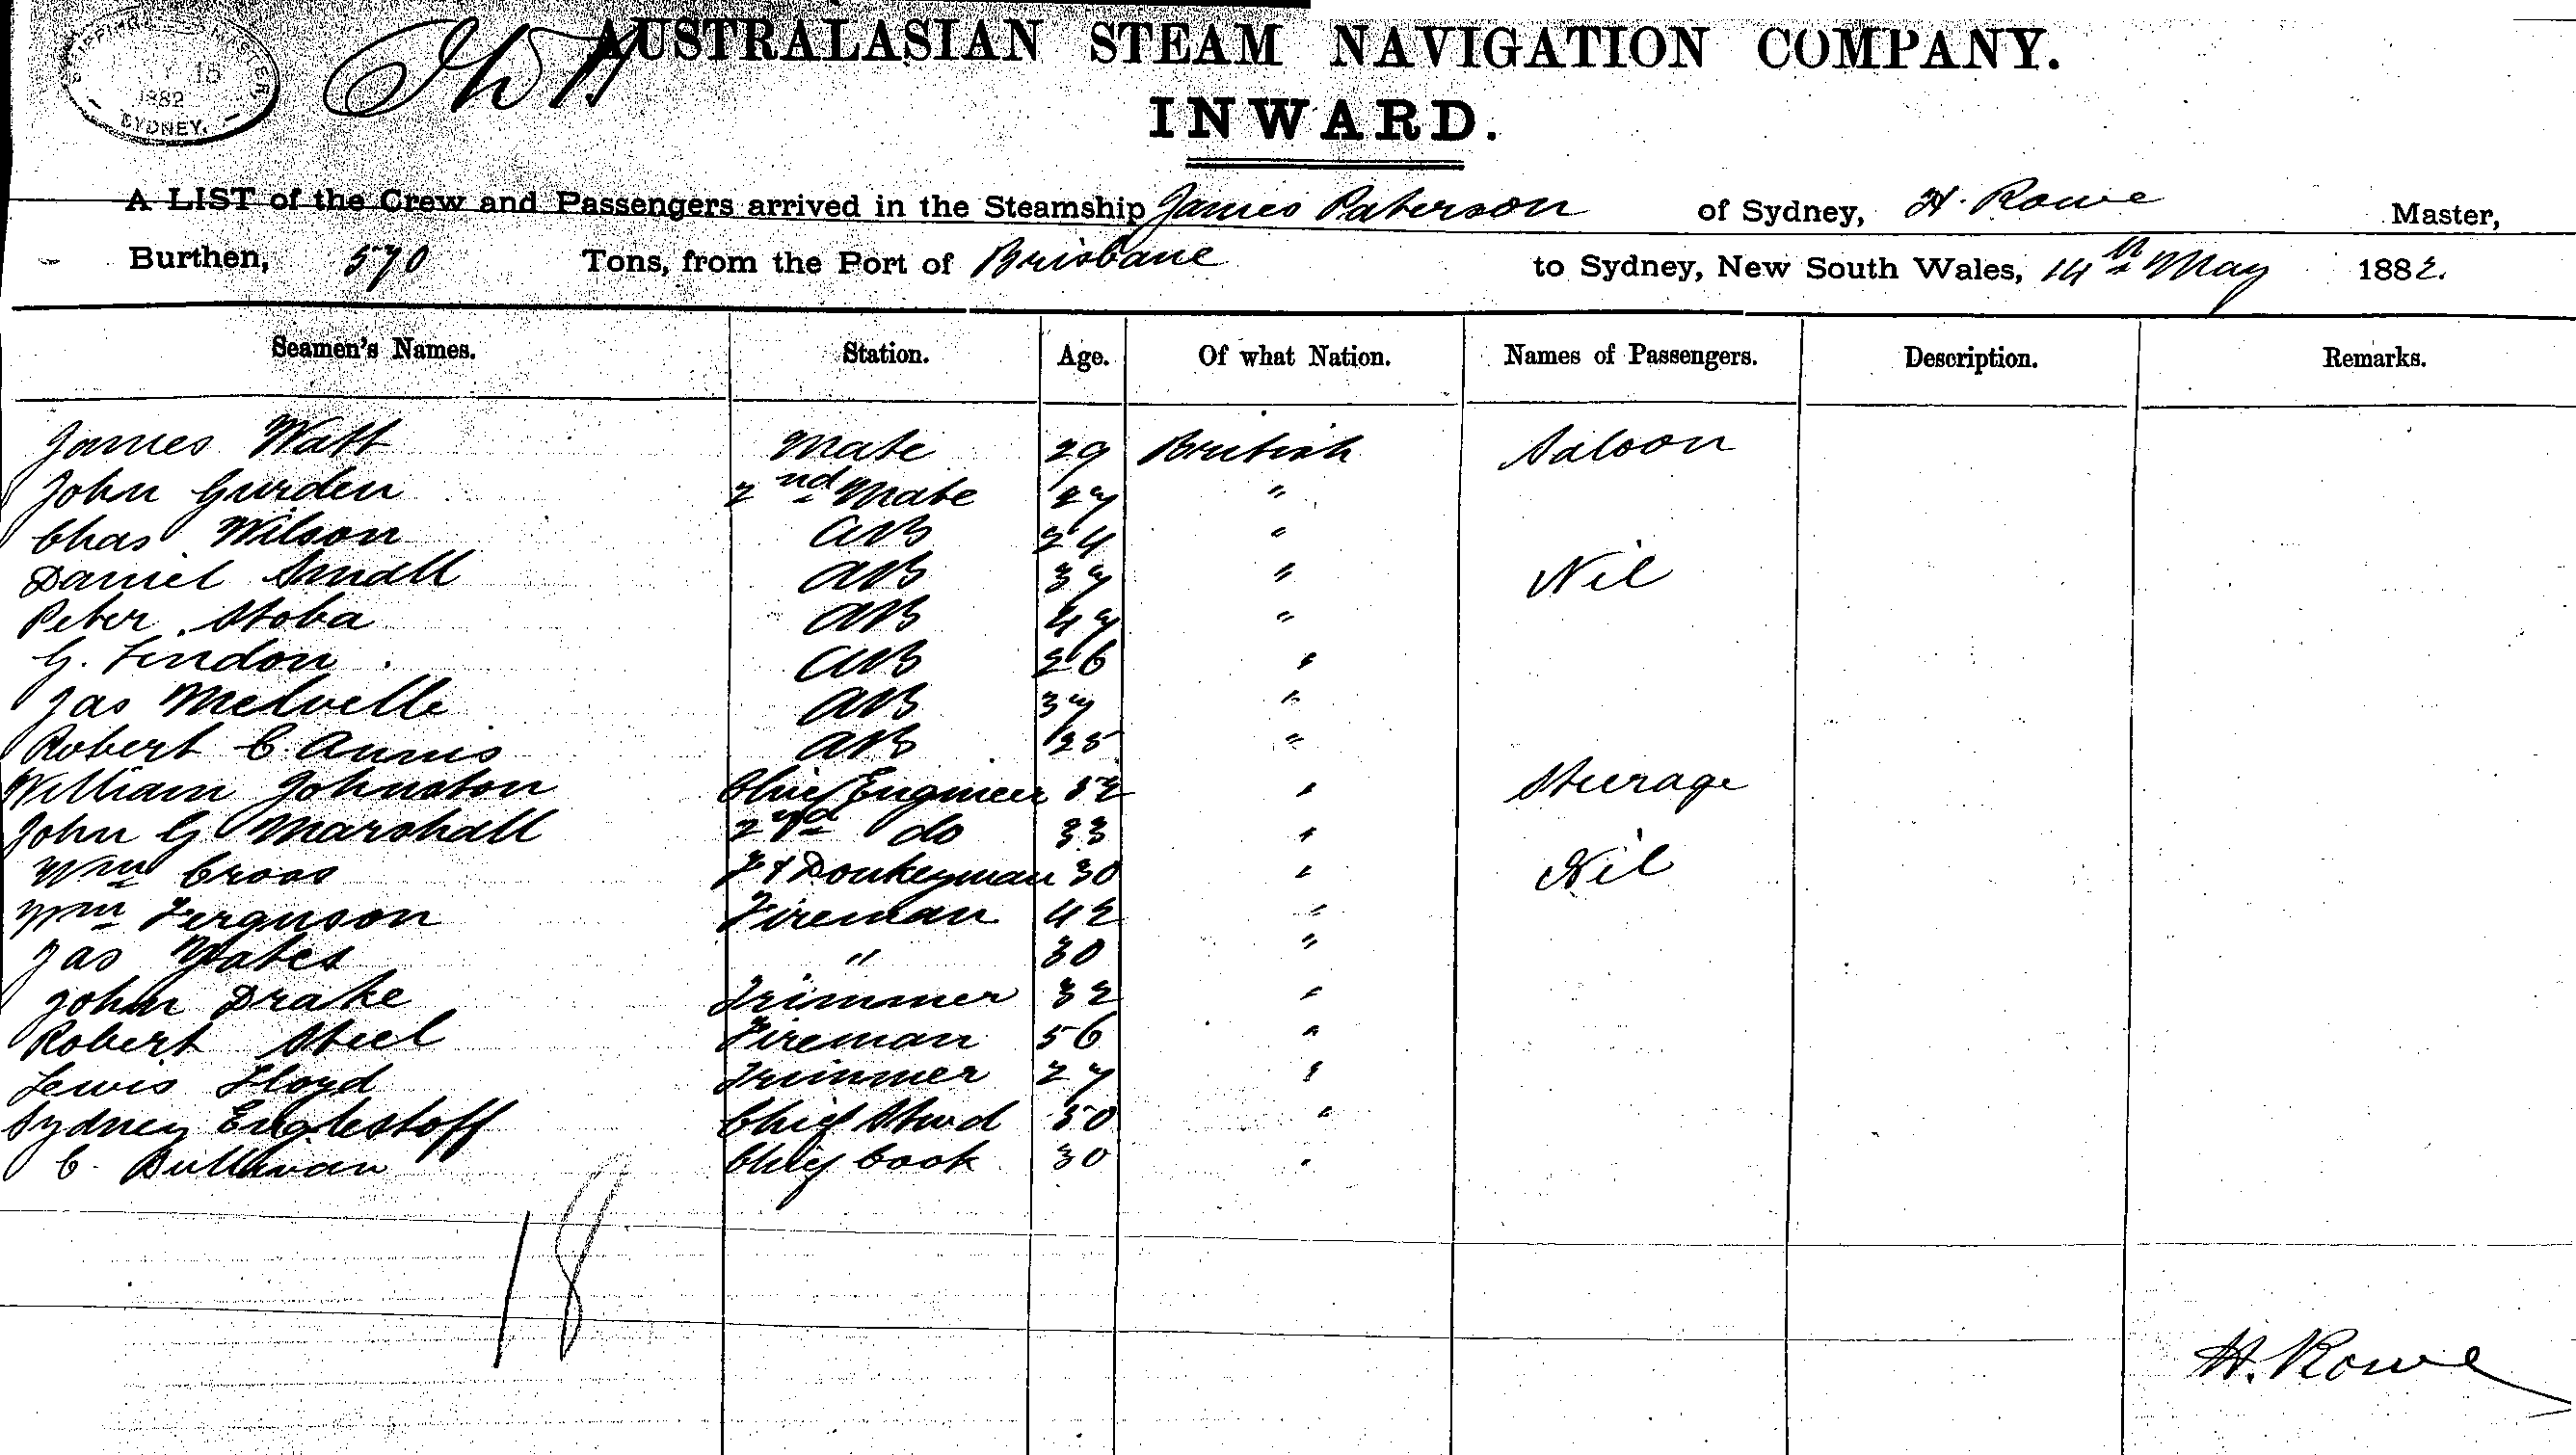 SHIPPING MASTER
15
1882
SYDNEY.
AUSTRALASIAN STEAM NAVIGATION COMPANY.
INWARD.
A LIST of the Crew and Passengers arrived in the Steamship James Paterson of Sydney, H. Rowe Master,
Burthen, 570 Tons, from the Port of Brisbane to Sydney, New South Wales, 14th May 1882.
Seamen's Names. Station. Age. Of what Nation. Names of Passengers. Description. Remarks.
James Watt Mate 29 British Saloon
John Gurden 2nd Mate 27 "
Chas Wilson AB 24 "
Daniel Small AB 37 " Nil
Peter Stoba AB 47 "
G. Lindon AB 26 "
Jas Melville AB 37 "
Robert C. Annis AB 25 "
William Johnston Chief Engineer 52 " Steerage
John G Marshall 2nd do 33 "
Wm Cross F & Donkeyman 30 " Nil
Wm Ferguson Fireman 42 "
Jas Yates " 30 "
John Drake Trimmer 32 "
Robert Steel Fireman 56 "
Lewis Floyd Trimmer 27 "
Sydney Englestoff Chief Stwd 30 "
C. Bullivan Chief Cook 30 "
18
H. Rowe